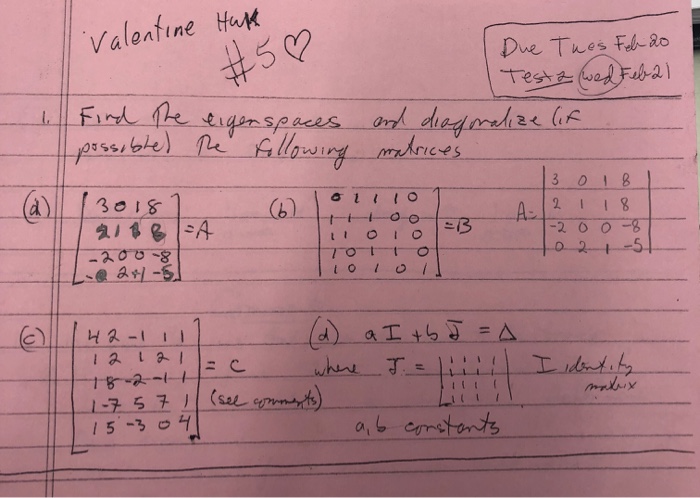 Valentine HWK
#5 ♡
Due Tues Feb 20
Test 2 Wed Feb 21
1. Find the eigenspaces and diagonalize (if
possible) the following matrices
(a)
3 0 1 8
2 1 1 8
-2 0 0 -8
0 2 1 -5
= A
(b)
0 1 1 1 0
1 1 1 0 0
1 1 0 1 0
1 0 1 1 0
1 0 1 0 1
= B
A =
3 0 1 8
2 1 1 8
-2 0 0 -8
0 2 1 -5
(c)
4 2 -1 1 1
1 2 1 2 1
1 8 -2 -1 1
1 -7 5 7 1
1 5 -3 0 4
= C
(see comments)
(d) aI + bJ = Δ
where J =
1 1 1 1
1 1 1 1
1 1 1 1
1 1 1 1
I identity
matrix
a, b constants